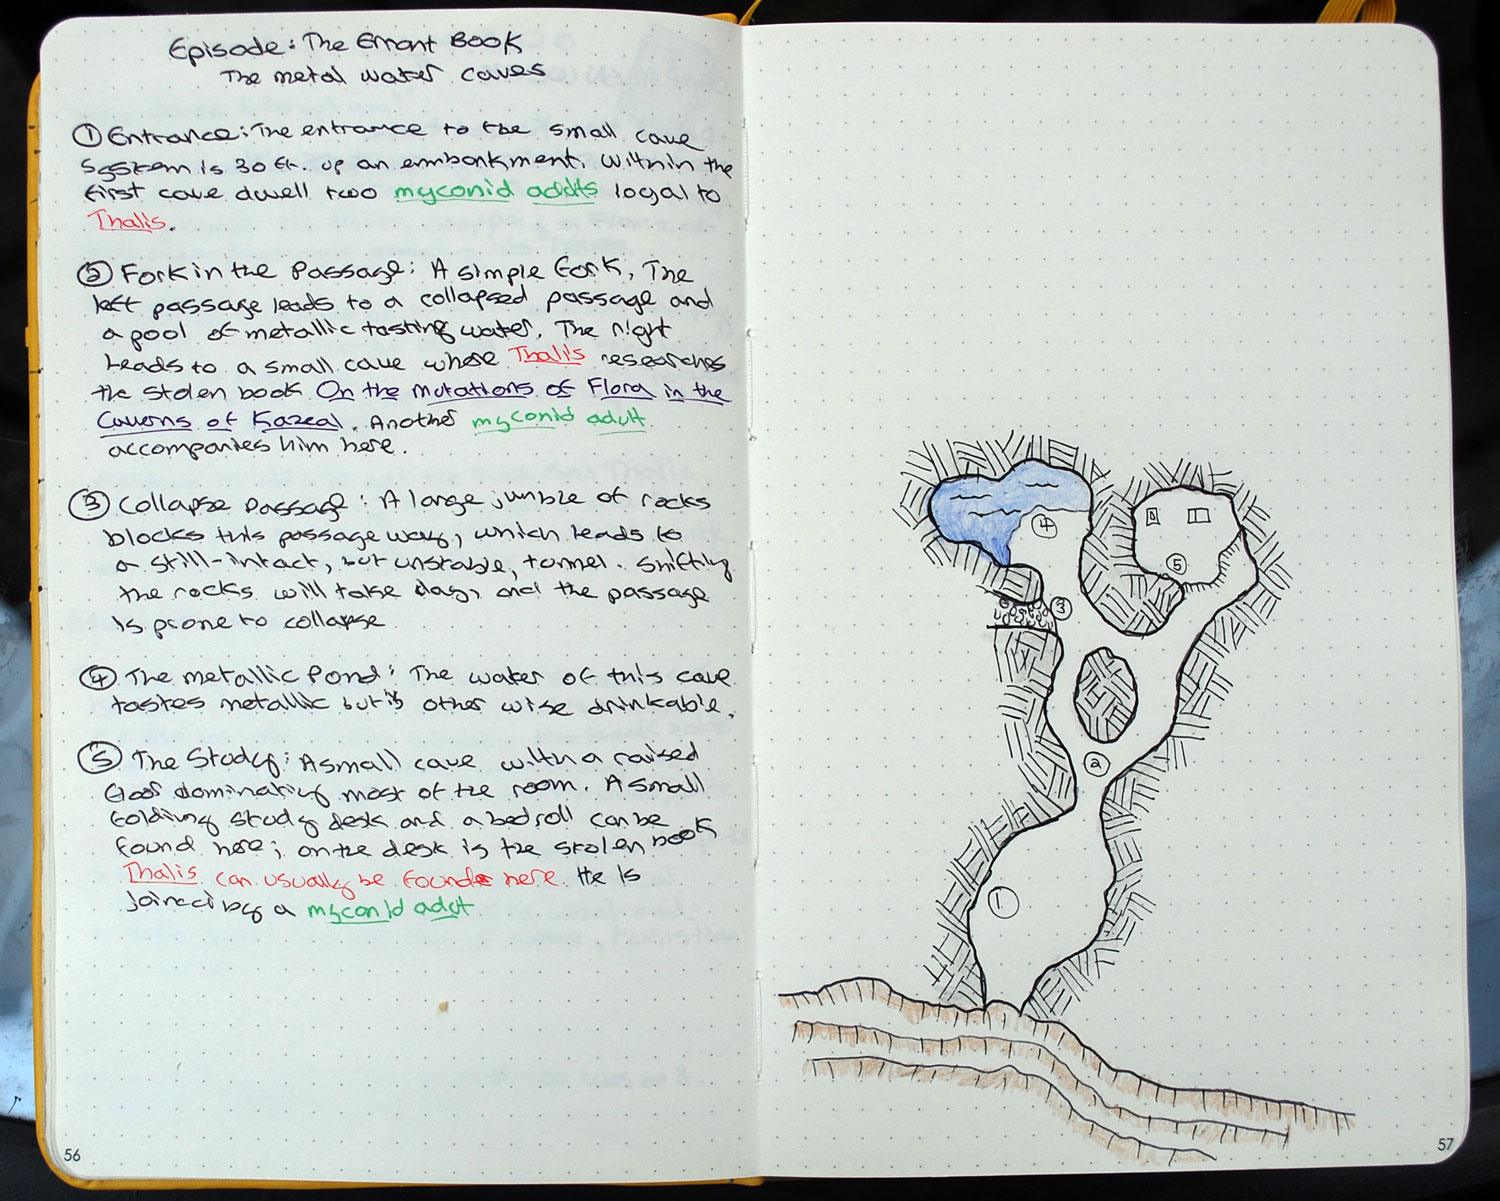 Episode: The Errant Book
The metal water caves
① Entrance: The entrance to the small cave
system is 30 ft. up an embankment. Within the
first cave dwell two myconid adults loyal to
Thalis.
② Fork in the passage: A simple fork, The
left passage leads to a collapsed passage and
a pool of metallic tasting water. The right
leads to a small cave where Thalis researches
the stolen book On the Mutations of Flora in the
Caverns of Kazeal. Another myconid adult
accompanies him here.
③ Collapse Passage: A large jumble of rocks
blocks this passage way, which leads to
a still-intact, but unstable, tunnel. Shifting
the rocks will take days, and the passage
is prone to collapse
④ The metallic Pond: The water of this cave
tastes metallic but is other wise drinkable.
⑤ The Study: A small cave with a raised
floor dominating most of the room. A small
folding study desk and a bedroll can be
found here; on the desk is the stolen book
Thalis can usually be found here. He is
joined by a myconid adult
4
5
3
2
1
56
57